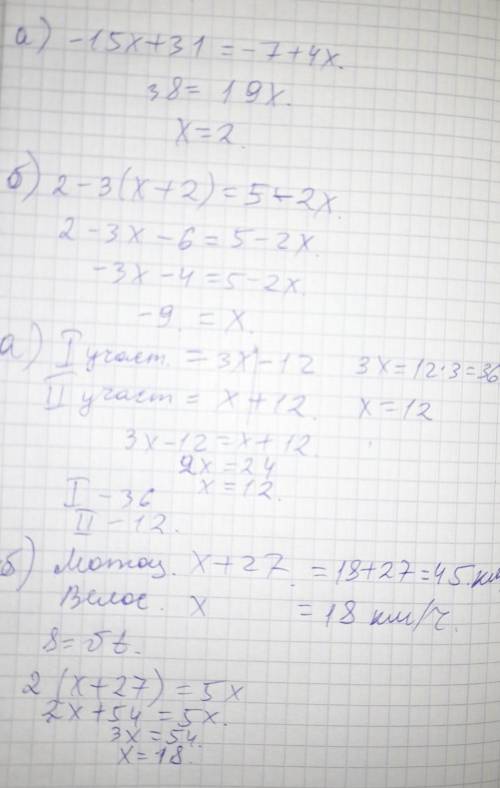 а) -15x+31=-7+4x.
38=19x.
x=2.
б) 2-3(x+2)=5-2x.
2-3x-6=5-2x.
-3x-4=5-2x.
-9.=x.
а) I участ.=3x-12 3x=12·3=36
II участ=x+12. x=12
3x-12=x+12.
2x=24
x=12.
I-36
II-12.
б) Мотоц. x+27.=18+27=45 км
Велос. x =18 км/ч.
S=vt.
2(x+27)=5x
2x+54=5x.
3x=54.
x=18.